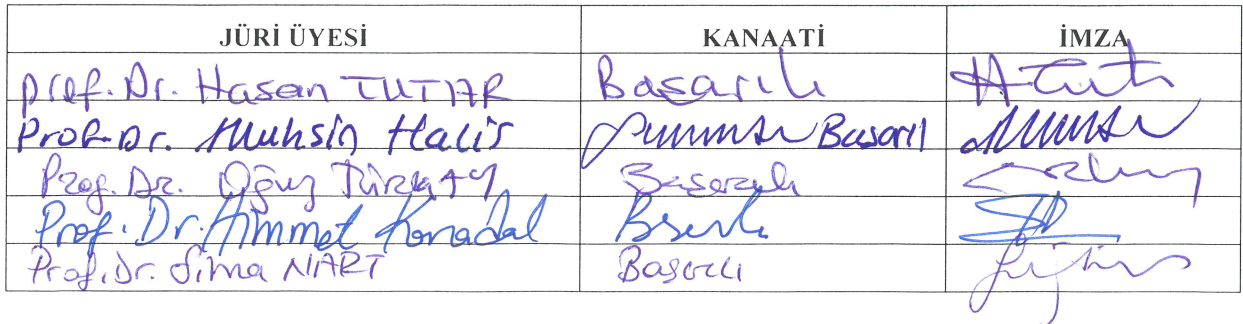 JÜRİ ÜYESİ KANAATİ İMZA
Prof. Dr. Hasan TUTAR Başarılı
Prof. Dr. Muhsin Halis Başarıl
Prof. Dr. Oğuz Türkay Başarılı
Prof. Dr. Himmet Karadal
Prof. Dr. Sima NART Başarılı